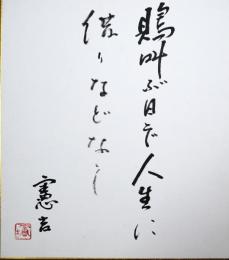 鵙叫ぶ日ぞ人生に
借りなどなし
憲吉